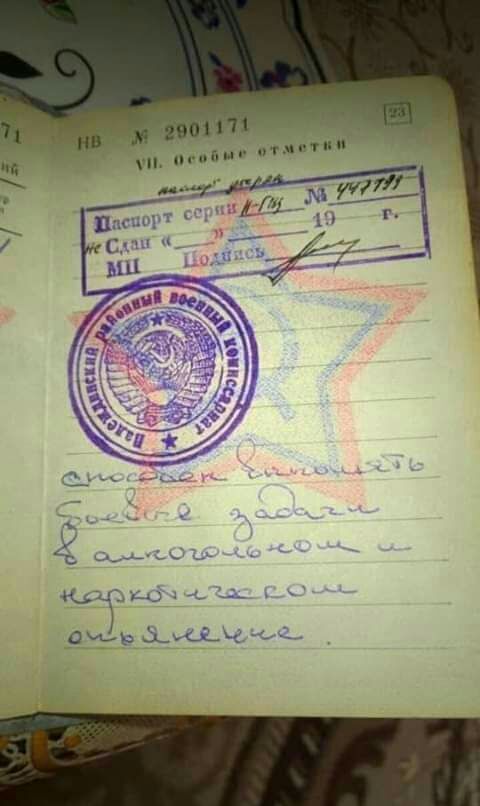 71
НВ № 2901171
23
VII. Особые отметки
паспорт утерян
Паспорт серии II-ГЩ № 447199
не Сдан « » 19 г.
МП Подпись
Надеждинский районный военный комиссариат
способен выполнять
боевые задачи
в алкогольном и
наркотическом
опьянение.